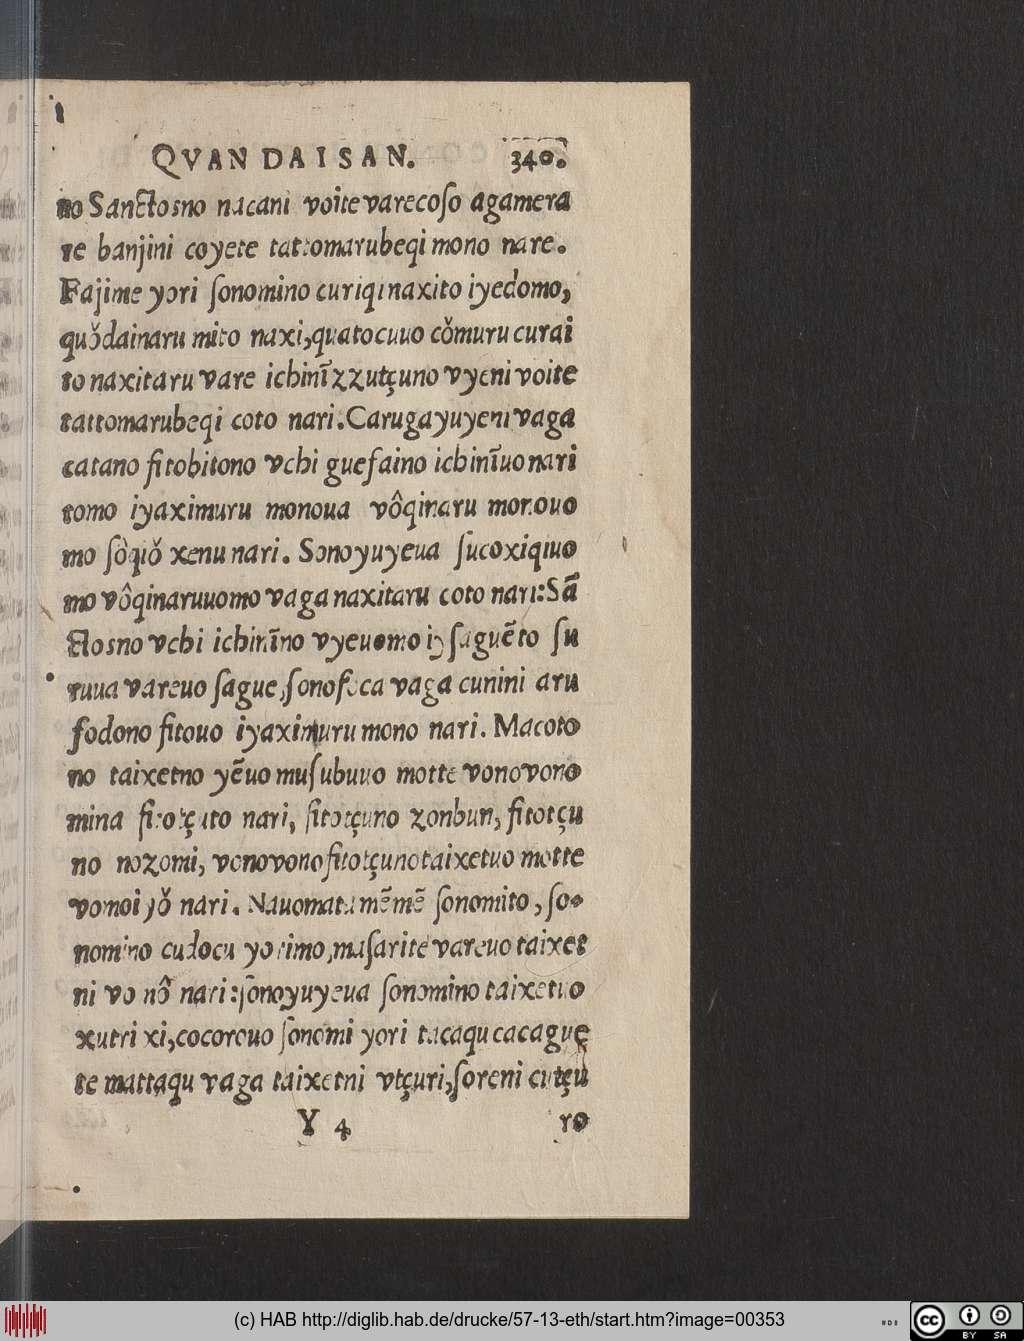 QVAN DAI SAN. 340.
no Sanctosno nacani voite varecoſo agamera
re banjini coyete tattomarubeqi mono nare.
Fajime yori ſonomino curiqi naxito iyedomo,
quǒdainaru mito naxi, quatocuuo cǒmuru curai
to naxitaru vare ichinĩzzutçuno vyeni voite
tattomarubeqi coto nari. Caruga yuyeni vaga
catano fitobitono vchi guefaino ichinĩuo nari
tomo iyaximuru monoua vôqinaru monouo
mo ſôqiǒ xenu nari. Sonoyuyeua ſucoxiqiuo
mo vôqinaruuomo vaga naxitaru coto nari: Sã
ctosno vchi ichinĩno vyeuomo iy ſaguẽto ſu
ruua vareuo ſague, ſonofoca vaga cunini aru
fodono fitouo iyaximuru mono nari. Macoto
no taixetno yẽuo muſubuuo motte vonovono
mina fitotçuto nari, fitotçuno zonbun, fitotçu
no nozomi, vonovono fitotçuno taixetuo motte
vomoi yǒ nari. Nauomata mẽmẽ ſonomito, ſo-
nomino cudocu yorimo, maſarite vareuo taixet
ni vo nô nari: ſonoyuyeua ſonomino taixetuo
xutri xi, cocorouo ſonomi yori tacaqu cacague
te mattaqu vaga taixetni vtçuri, ſoreni cutçu
Y 4 ro
(c) HAB http://diglib.hab.de/drucke/57-13-eth/start.htm?image=00353
cc BY SA